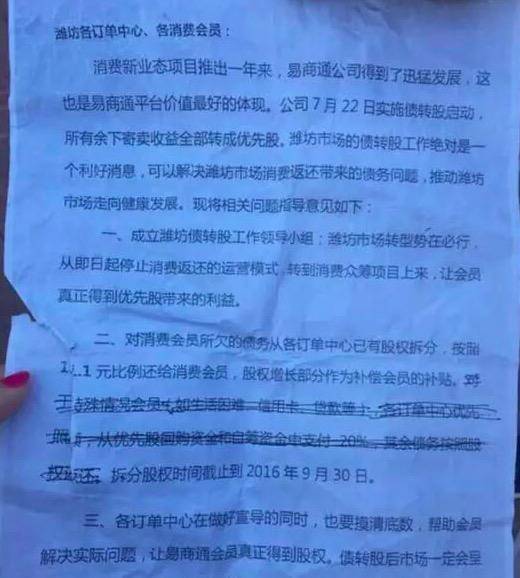 潍坊各订单中心、各消费会员：
消费新业态项目推出一年来，易商通公司得到了迅猛发展，这
也是易商通平台价值最好的体现。公司7月22日实施债转股启动，
所有余下寄卖收益全部转成优先股。潍坊市场的债转股工作绝对是一
个利好消息，可以解决潍坊市场消费返还带来的债务问题，推动潍坊
市场走向健康发展。现将相关问题指导意见如下：
一、成立潍坊债转股工作领导小组；潍坊市场转型势在必行，
从即日起停止消费返还的运营模式，转到消费众筹项目上来，让会员
真正得到优先股带来的利益。
二、对消费会员所欠的债务从各订单中心已有股权拆分，按照
1:1元比例还给消费会员，股权增长部分作为补偿会员的补贴。对
于特殊情况会员，如生活困难、信用卡、贷款等，各订单中心优先
照，从优先股回购资金和自筹资金中支付20%，其余债务按照股
权还。拆分股权时间截止到2016年9月30日。
三、各订单中心在做好宣导的同时，也要摸清底数，帮助会员
解决实际问题，让易商通会员真正得到股权。债转股后市场一定会呈